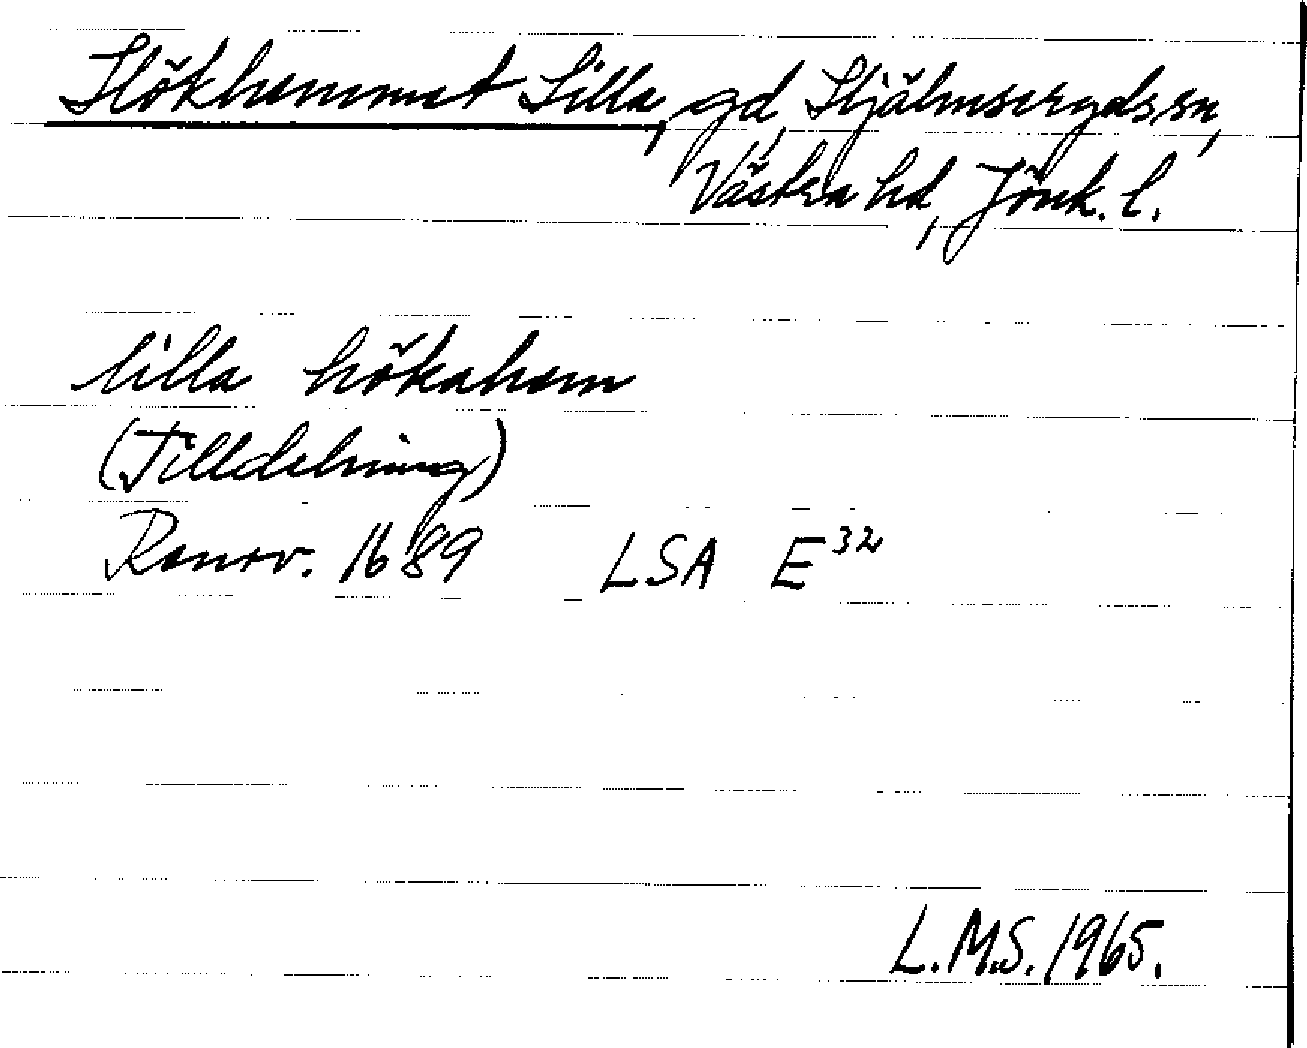 Hökhemmet Lilla, gd, Hjälmseryds sn,
Västra hd, Jönk. l.
lilla hökahem
(Tilldelning)
Renov. 1689 LSA E³²
L.M.S. 1965.